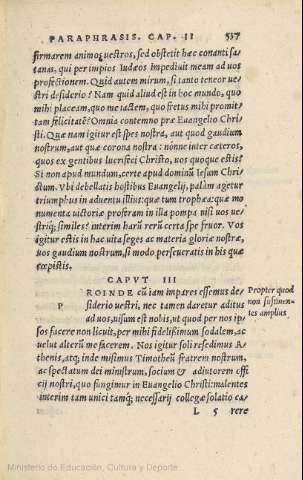 PARAPHRASIS. CAP. II 537
firmarem animos uestros, sed obstetit hæc conanti sa=
tanas, qui per impios Iudæos impediuit meam ad uos
profectionem. Quid autem mirum, si tanto teneor ue=
stri desiderio? Nam quid aliud est in hoc mundo, quo
mihi placeam, quo me iactem, quo fretus mihi promit=
tam felicitatē? Omnia contemno præ Euangelio Chri=
sti. Quæ nam igitur est spes nostra, aut quod gaudium
nostrum, aut quæ corona nostra: nónne inter cæteros,
quos ex gentibus lucrifeci Christo, uos quoque estis?
Si non apud mundum, certe apud dominū Iesum Chri
stum. Vbi debellatis hostibus Euangelij, palàm agetur
triumphus in aduentu illius: quæ tum trophæa: quæ mo
numenta uictoriæ proferam in illa pompa nisi uos ue=
striq; similes? interim harū rerū certa spe fruor. Vos
igitur estis in hac uita seges ac materia gloriæ nostræ,
uos gaudium nostrum, si modo perseueratis in his quæ
cœpistis.
CAPVT III
PROINDE cū iam impares essemus de=
siderio uestri, nec tamen daretur aditus
ad uos, uisum est nobis, ut quod per nos ip=
sos facere non licuit, per mihi fidelissimum sodalem, ac
uelut alterū me facerem. Nos igitur soli resedimus A=
thenis, atq; inde misimus Timotheū fratrem nostrum,
ac spectatum dei ministrum, socium & adiutorem offi
cij nostri, quo fungimur in Euangelio Christi: malentes
interim tam unici tamq; necessarij collegæ solatio ca=
L 5 rere
Propter quod
non sustinen=
tes amplius
Ministerio de Educación, Cultura y Deporte